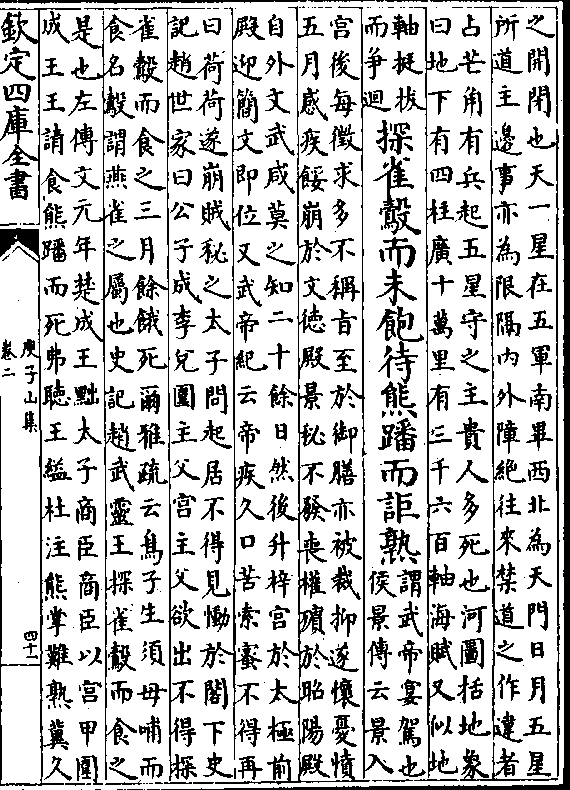 之開閉也天一星在五軍南畢西北為天門日月五星
所道主邊事亦為限隔內外障絕往來禁道之作違者
占芒角有兵起五星守之主貴人多死也河圖括地象
曰地下有四柱廣十萬里有三千六百軸海賦又似地
軸挺拔
而爭迴
探雀鷇而未飽待熊蹯而詎熟
謂武帝宴駕也
侯景傳云景入
宮後每徵求多不稱旨至於御膳亦被裁抑遂懷憂憤
五月感疾餒崩於文德殿景秘不發喪權殯於昭陽殿
自外文武咸莫之知二十餘日然後升梓宮於太極前
殿迎簡文即位又武帝紀云帝疾久口苦索蜜不得再
曰荷荷遂崩賊秘之太子問起居不得見慟於閤下史
記趙世家曰公子成李兌圍主父宮主父欲出不得探
雀鷇而食之三月餘餓死爾雅疏云鳥子生須母哺而
食名鷇謂燕雀之屬也史記趙武靈王探雀鷇而食之
是也左傳文元年楚成王黜太子商臣商臣以宮甲圍
成王王請食熊蹯而死弗聽王縊杜注熊掌難熟冀久
欽定四庫全書
庾子山集
卷二
四十一